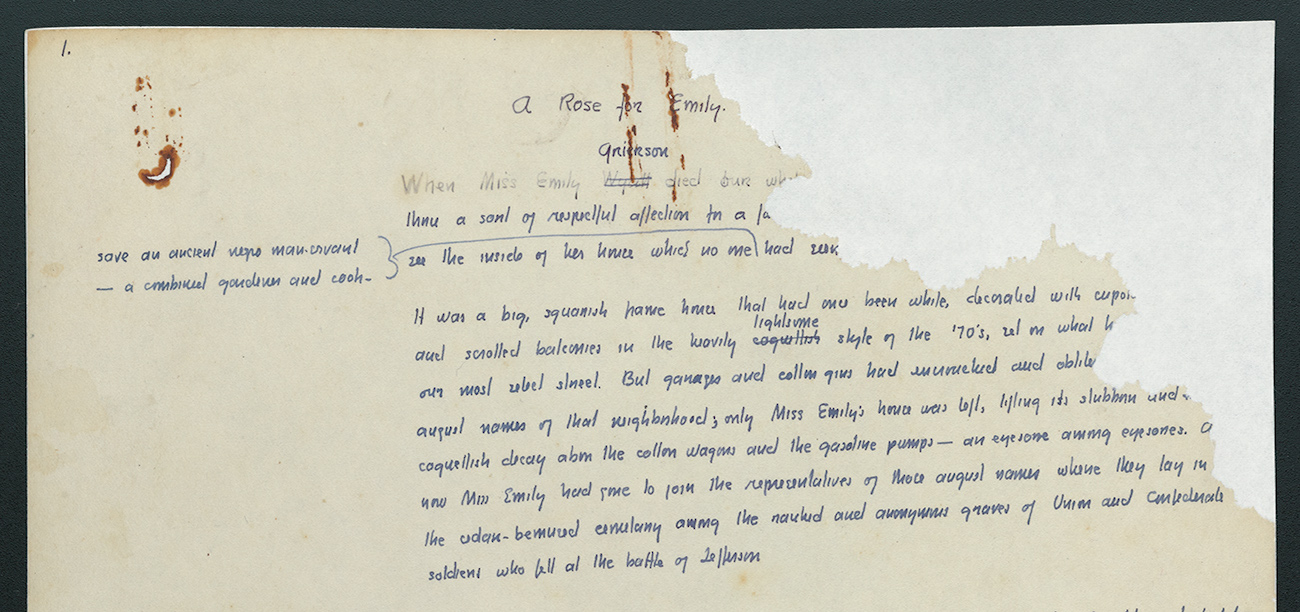 1.
A Rose for Emily.
Grierson
When Miss Emily Wyatt died our
thru a sort of respectful affection for a
save an ancient negro man-servant
see the inside of her house which no one had seen
— a combined gardener and cook—
It was a big, squarish frame house that had once been white, decorated with
lightsome
and scrolled balconies in the heavily coquettish style of the '70's, set on what
our most select street. But garages and cotton gins had encroached and
august names of that neighborhood; only Miss Emily's house was left, lifting its stubborn and
coquettish decay above the cotton wagons and the gasoline pumps — an eyesore among eyesores. A
now Miss Emily had gone to join the representatives of those august names where they lay in
the cedar-bemused cemetery among the ranked and anonymous graves of Union and Confederate
soldiers who fell at the battle of Jefferson